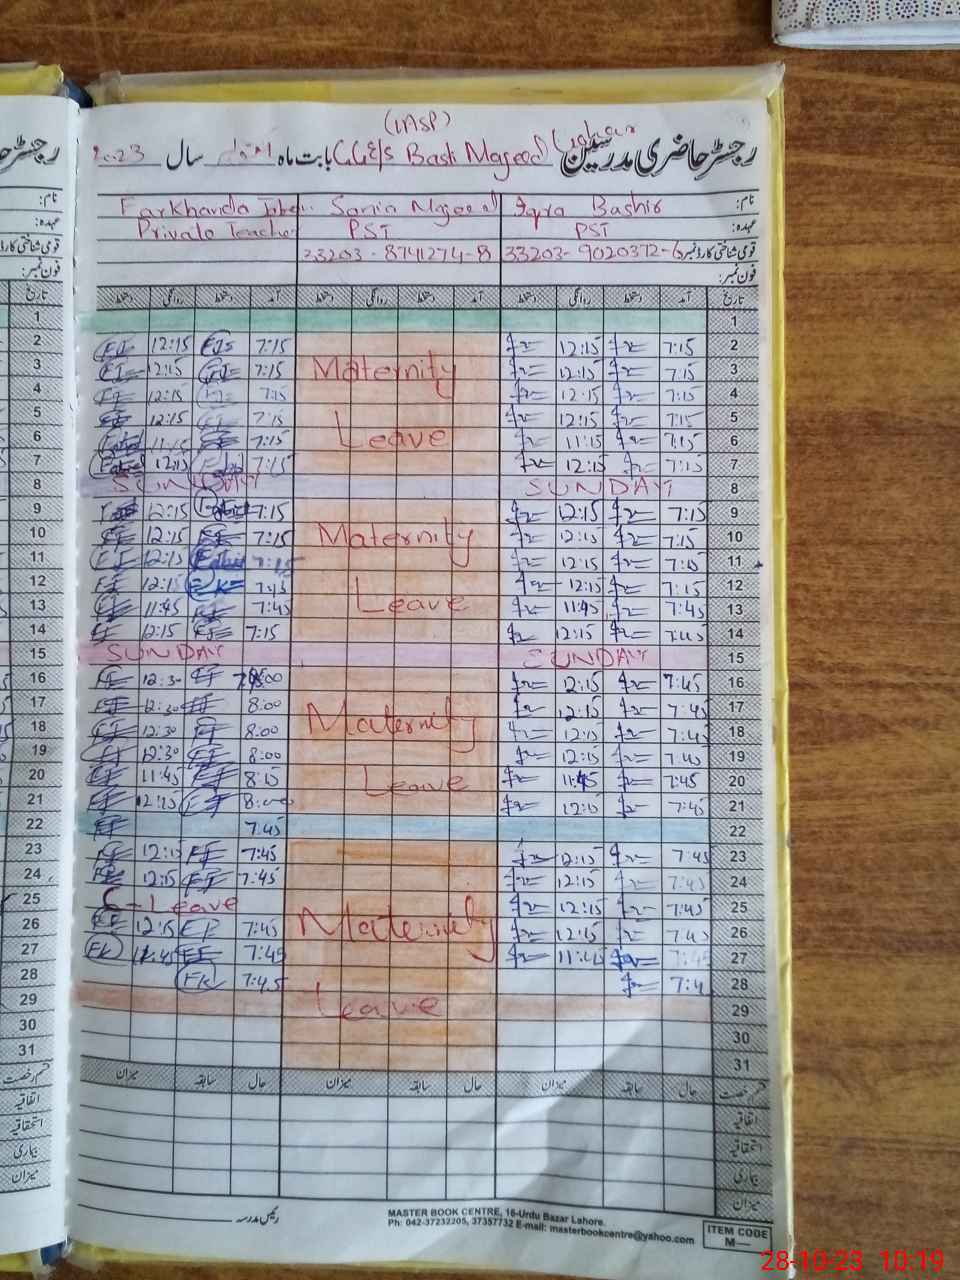 (IASP)
رجسٹر حاضری مدرسین GGE/s Basti Majeed بابت ماہ سال 2023
نام: Iqra Bashir Sania Majeed Farkhanda
عہدہ: PST PST Private Teacher
قومی شناختی کارڈ نمبر 33203-9020372-6 23203-8741274-8
فون نمبر:
تاریخ آمد دستخط روانگی دستخط آمد دستخط روانگی دستخط آمد دستخط روانگی دستخط
1
2 7:15 12:15 7:15 12:15
3 7:15 12:15 Maternity 7:15 12:15
4 7:15 12:15 7:15 12:15
5 7:15 12:15 7:15 12:15
6 7:15 11:15 Leave 7:15 11:15
7 7:15 12:15 7:15 12:15
8 SUNDAY SUNDAY
9 7:15 12:15 7:15 12:15
10 7:15 12:15 Maternity 7:15 12:15
11 7:15 12:15 7:15 12:15
12 7:15 12:15 7:15 12:15
13 7:45 11:45 Leave 7:45 11:45
14 7:45 12:15 7:15 12:15
15 SUNDAY SUNDAY
16 7:45 12:15 12:30
17 7:45 12:15 8:00 12:30
18 7:45 12:15 Maternity 8:00 12:30
19 7:45 12:15 8:00 12:30
20 7:45 11:45 Leave 8:15 11:45
21 7:45 12:15 8:00 12:15
22 7:45
23 7:45 12:15 7:45 12:15
24 7:45 12:15 7:45 12:15
25 7:45 12:15 C-Leave
26 7:45 12:45 Maternity 7:45 12:15
27 7:45 11:45 7:45 11:45
28 7:4 7:45
29 Leave
30
31
قسم رخصت حال سابقہ میزان حال سابقہ میزان حال سابقہ میزان
اتفاقیہ
استحقاقیہ
بیماری
میزان
رئیس مدرسہ
MASTER BOOK CENTRE, 16-Urdu Bazar Lahore.
Ph: 042-37232205, 37357732 E-mail: masterbookcentre@yahoo.com
ITEM CODE
M—
28-10-23 10:19